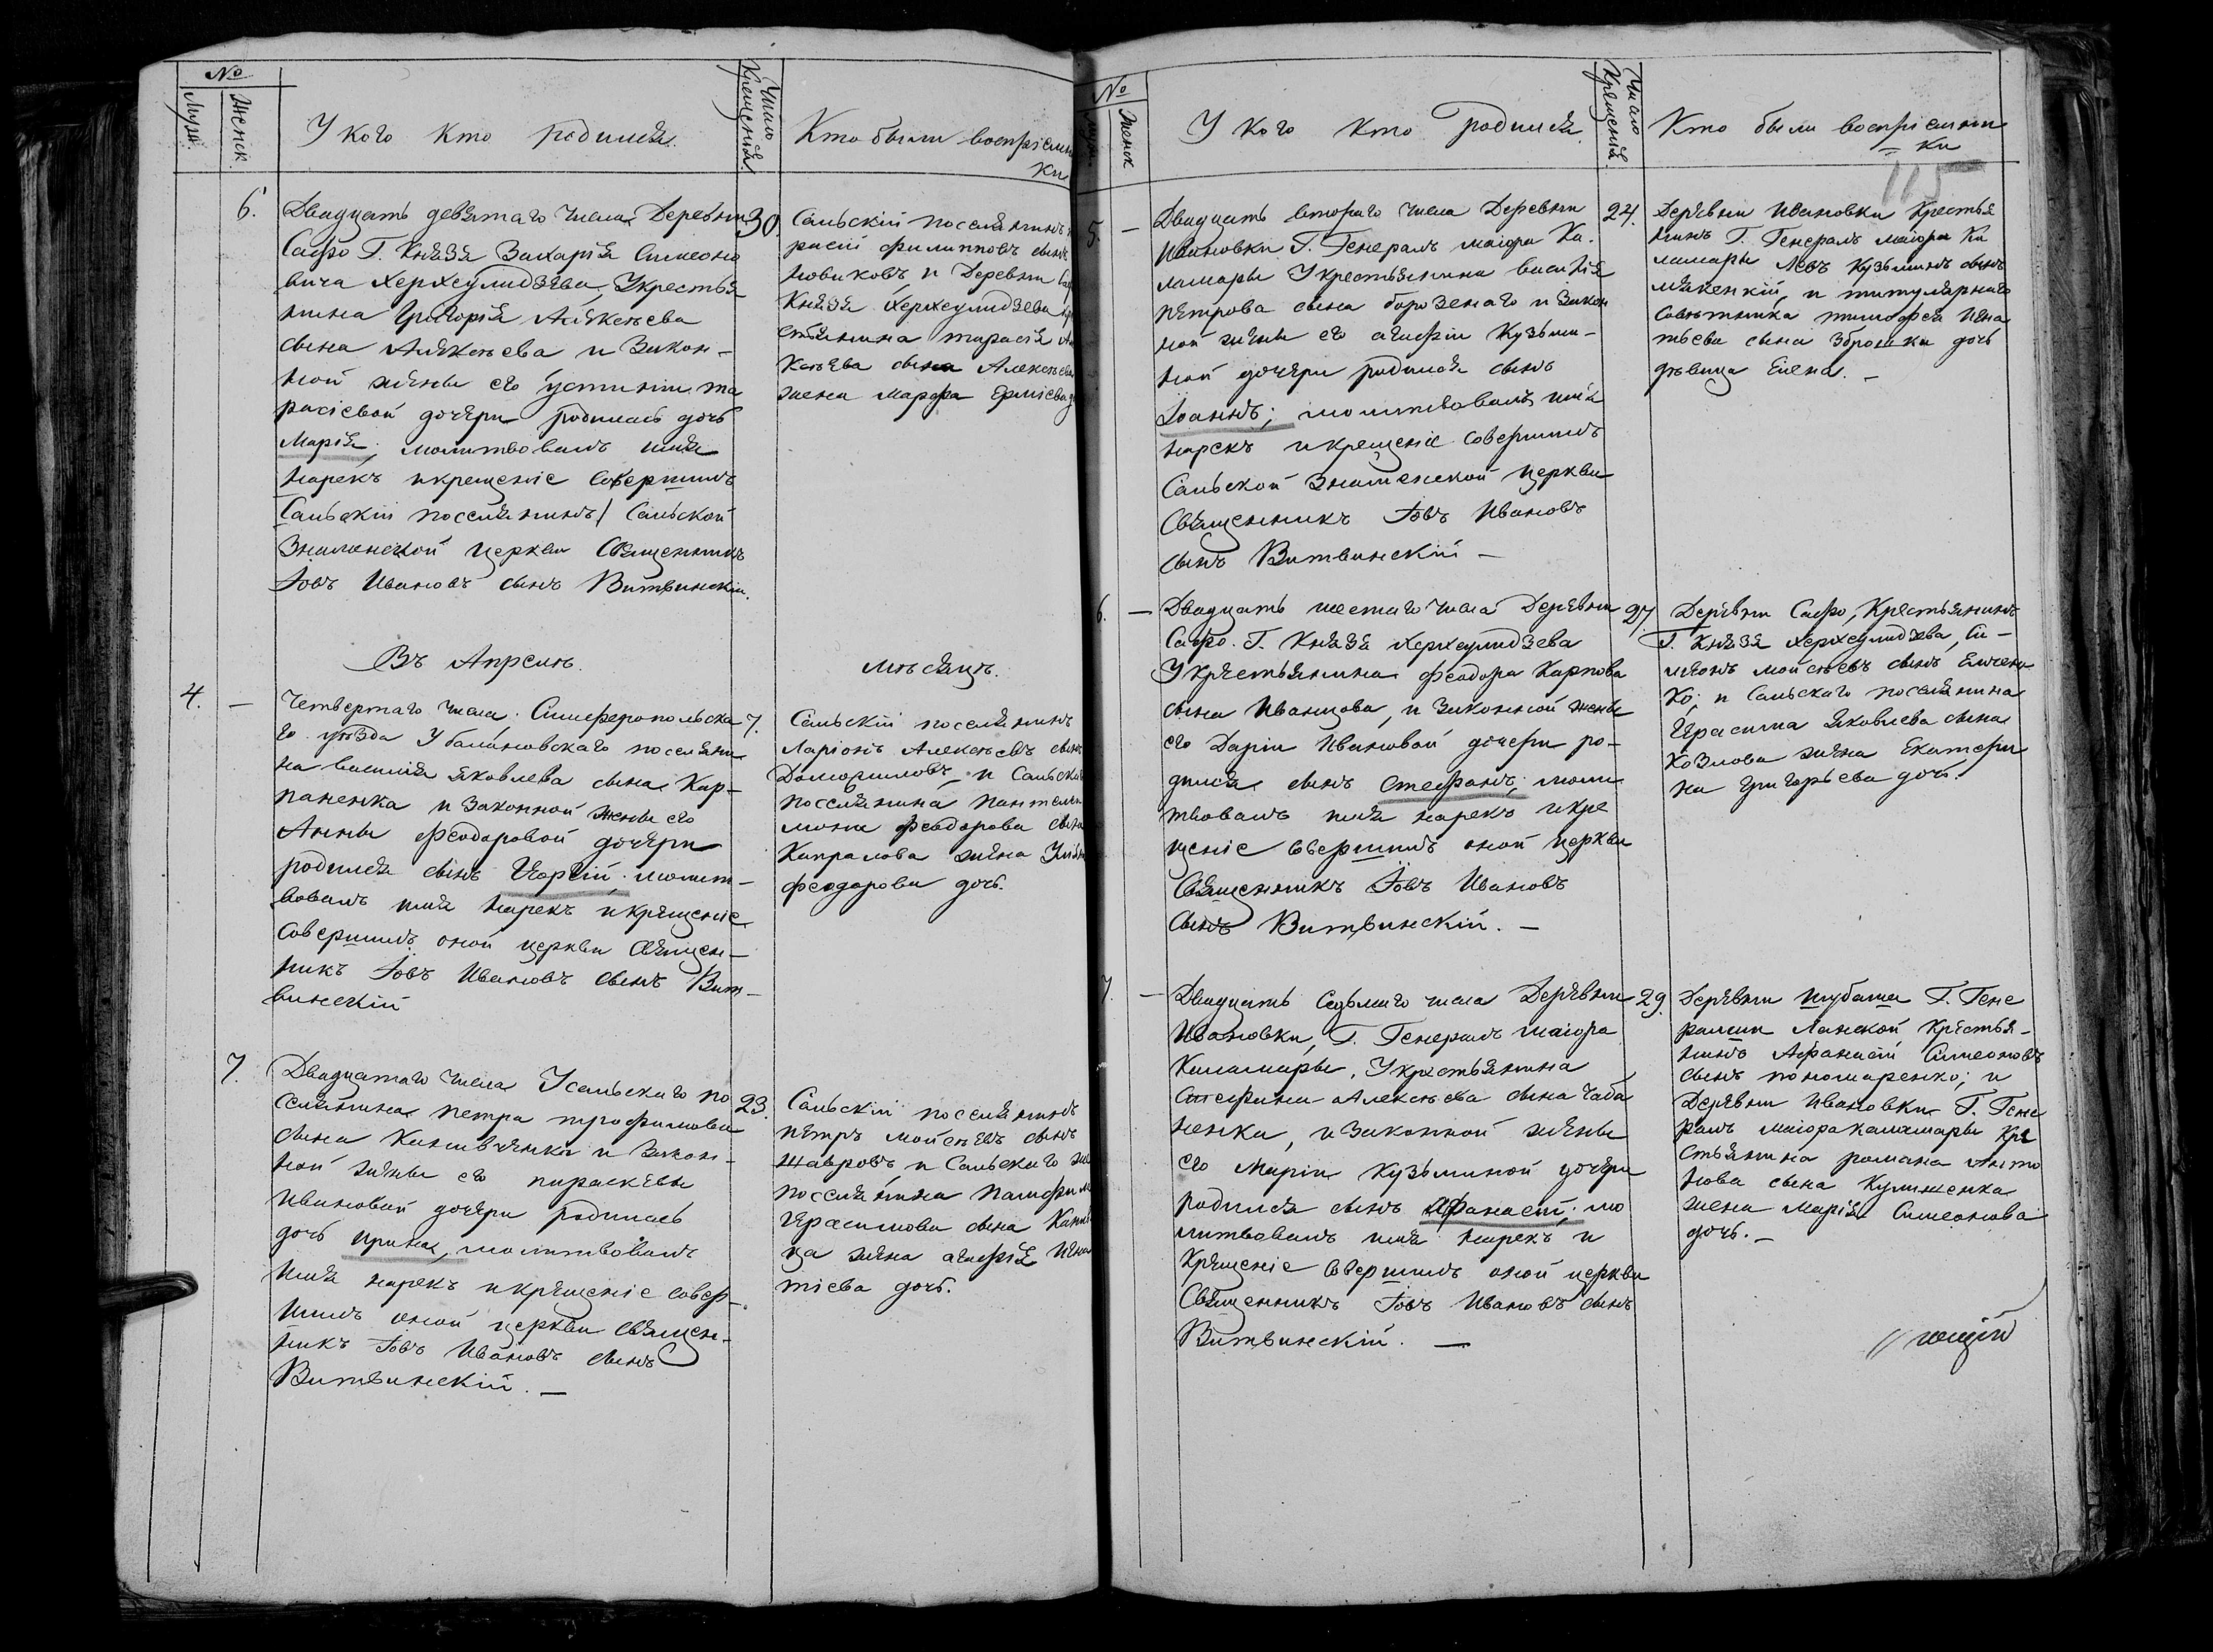 №
Муж.
Женск.
У кого кто родился.
Число Крещенія
Кто были воспріемни
ки
6.
Двадцать девятаго числа Деревни
Сафо Г. Князя Захарія Симеоно
вича Херхеулидзева, У крестья
нина Григорія Алексѣева
сына Алексѣева и Закон-
ной жены его Устиніи та
расіевой дочери родилась дочь
Марія; молитвовалъ имя
нарекъ и крещеніе совершилъ
Сальскій поселянинъ/ Сальской
Знаменской церкви Священникъ
Іовъ Ивановъ сынъ Витвинскій.
30.
Сальскій поселянинъ
расій филипповъ сынъ
новиковъ, и Деревни
Князя Херхеулидзева
стьянина тарасія
ксѣева сына Алексѣева
жена марфа Ермісва
Въ Апрелѣ.
мѣсяцѣ.
4.
—
Четвертаго числа, Симферопольска
го уѣзда У балановскаго поселяни
на василія яковлева сына Кар-
паненка и Законной жены его
Анны феодоровой дочери
родился сынъ Георгій молит-
вовалъ имя нарекъ и крещеніе
совершилъ оной церкви Священ-
никъ Іовъ Ивановъ сынъ Вит-
винскій
7.
Сальскій поселянинъ
Ларіонъ Алексѣевъ сынъ
и Сальскаго
поселянина пантелей
мона феодорова сына
Капралова жена
феодорова дочь.
7.
Двадцатаго числа У сальскаго по
селянина петра трофимова
сына и Закон-
ной жены его параскевы
ивановой дочери родилась
дочь ирина, молитвовалъ
имя нарекъ и крещеніе совер-
шилъ оной церкви Священ-
никъ Іовъ Ивановъ сынъ
Витвинскій. —
23.
Сальскій поселянинъ
петръ мойсѣевъ сынъ
и Сальскаго же
поселянина памфила
герасимова сына
ца жена агафія игна
тіева дочь.
№
Женск
У кого кто родился.
Число Крещенія.
Кто были воспріемни
ки
115
5.
—
Двадцать втораго числа Деревни
Ивановки Г. Генералъ маіора Ка
ламары У крестьянина василія
петрова сына борозенаго и Закон
ной жены его агафіи Кузьми-
ной дочери родился сынъ
Іоаннъ; молитвовалъ имя
нарекъ и крещеніе совершилъ
Сальской Знаменской церкви
Священникъ Іовъ Ивановъ
сынъ Витвинскій —
24.
Деревни Ивановки Крестья
нинъ Г. Генералъ маіора Ка
ламары Левъ Кузьминъ сынъ
и титулярнаго
Совѣтника тимофея Игна
тьева сына Зброшки дочь
дѣвица Елена. —
6.
—
Двадцать шестаго числа Деревни
Сафо. Г. Князя Херхеулидзева
У крестьянина феодора Карпова
сына Иванцова, и Законной жены
его Даріи Ивановой дочери ро-
дился сынъ Стефанъ; моли
твовалъ имя нарекъ и кре
щеніе совершилъ оной церкви
Священникъ Іовъ Ивановъ
сынъ Витвинскій. —
27
Деревни Сафо, Крестьянинъ
Г. Князя Херхеулидзева, Си-
меонъ мойсѣевъ сынъ Емчен
ко; и Сальскаго поселянина
Герасима яковлева сына
Козлова жена Екатери
на григорьева дочь.
7.
—
Двадцать Седьмаго числа Деревни
Ивановки, Г. Генералъ маіора
Каламары, У крестьянина
Стефана Алексѣева сына Чаба
ненка, и законной жены
его Маріи Кузьминой дочери
родился сынъ Афанасій; мо
литвовалъ имя нарекъ и
крещеніе совершилъ оной церкви
Священникъ Іовъ Ивановъ сынъ
Витвинскій. —
29.
Деревни шубаша Г. Гене
ралши Ланской Крестья-
нинъ Афанасій Симеоновъ
сынъ пономаренко; и
Деревни Ивановки Г. Гене
ралъ маіора каламары Кре
стьянина романа Анто
нова сына
жена Марія Симеонова
дочь. —